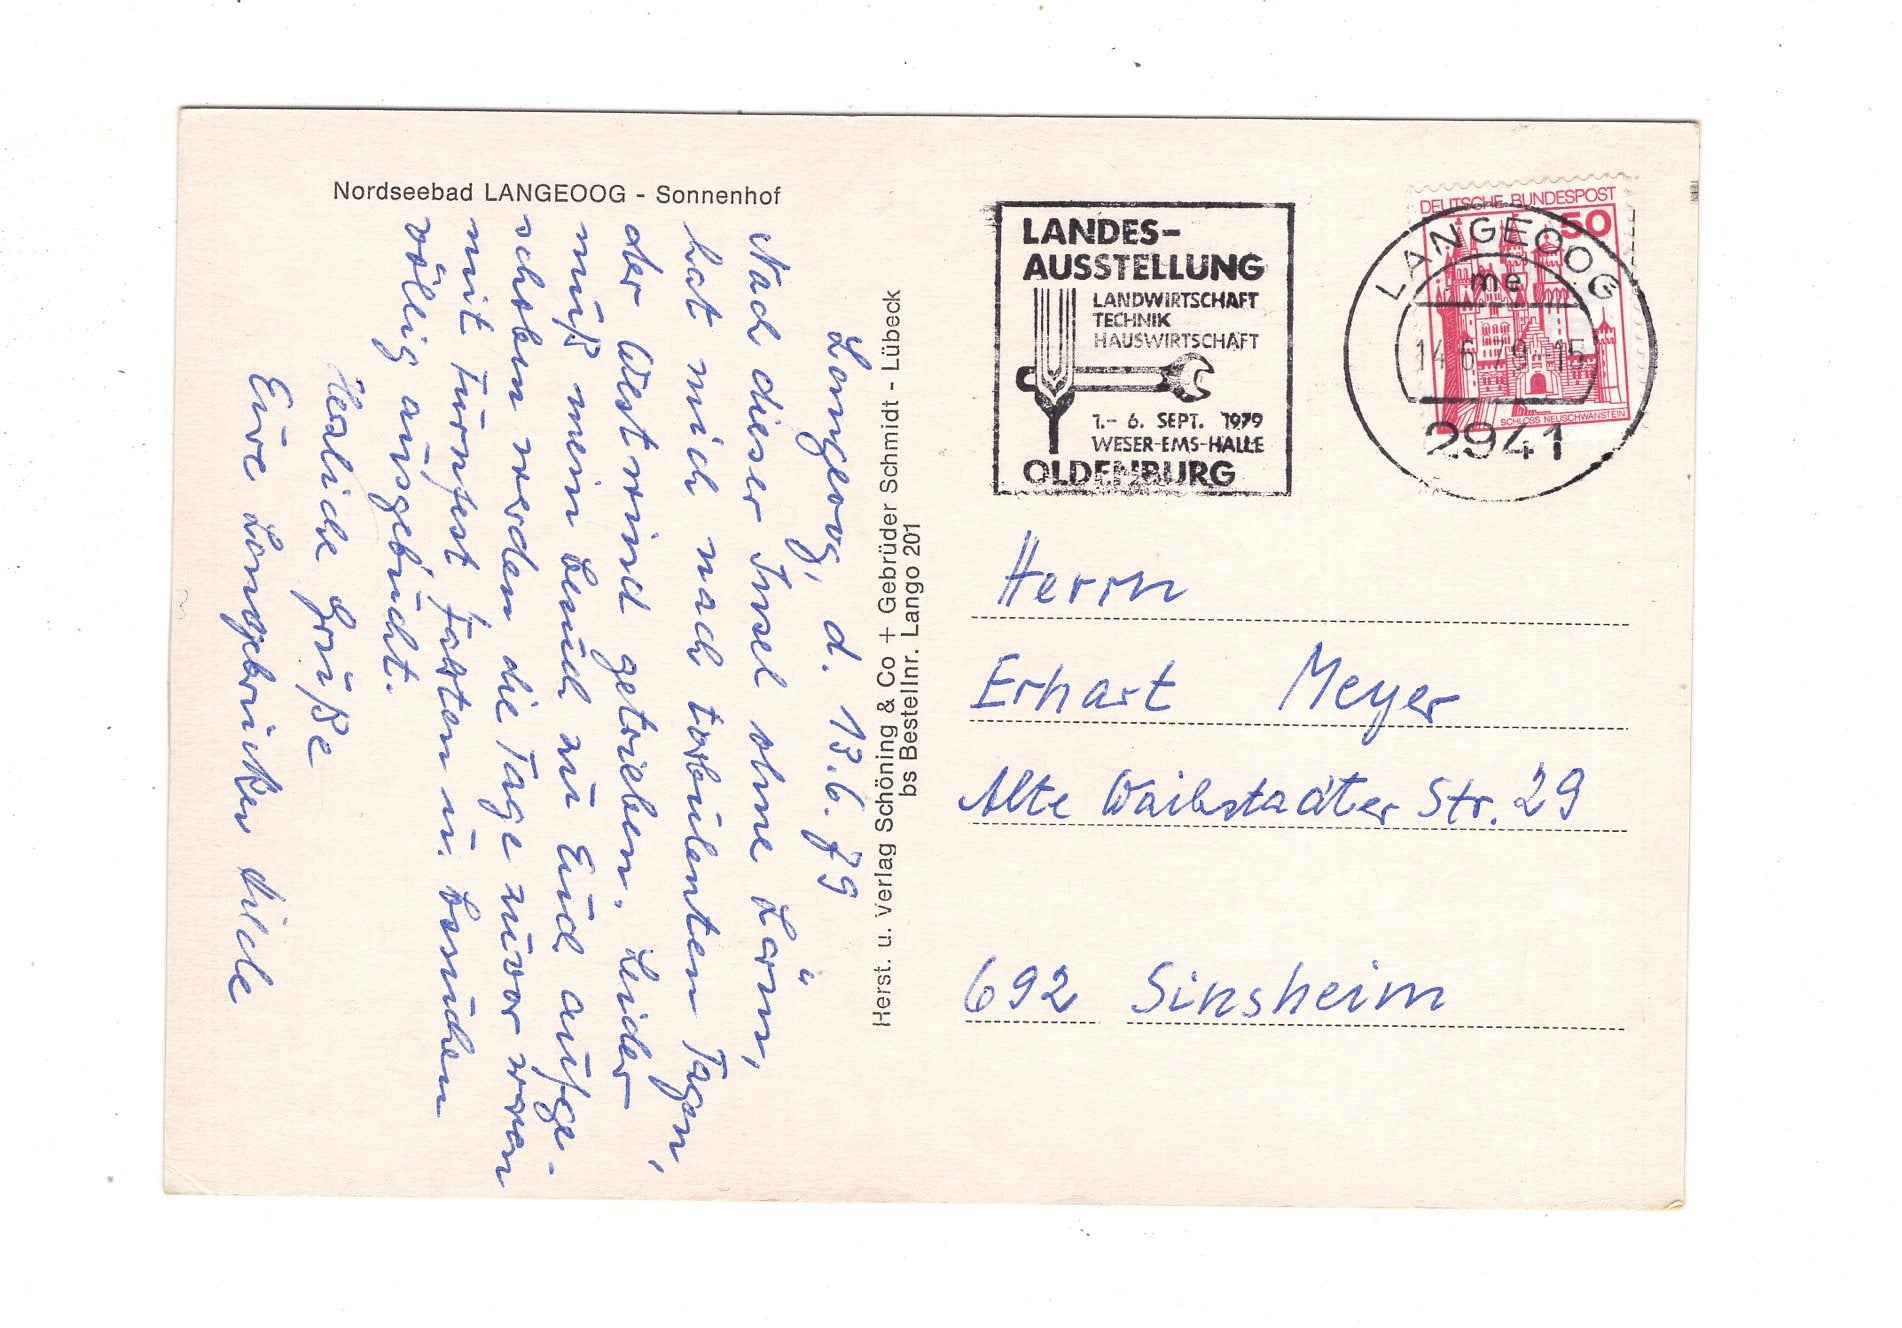 Nordseebad LANGEOOG - Sonnenhof
Langeoog, d. 13.6.79
Nach dieser Insel ohne Lärm,
hat mich nach turbulenten Tagen,
der Westwind getrieben. Leider
muß mein Besuch zu Euch aufge-
schoben werden die Tage zuvor waren
mit Turnfest, Fahrten u. Besuchen
völlig ausgebucht.
Herzliche Grüße
Eure
Herst. u. Verlag Schöning & Co + Gebrüder Schmidt - Lübeck
bs Bestellnr. Lango 201
LANDES-
AUSSTELLUNG
LANDWIRTSCHAFT
TECHNIK
HAUSWIRTSCHAFT
1.- 6. SEPT. 1979
WESER-EMS-HALLE
OLDENBURG
DEUTSCHE BUNDESPOST
50
SCHLOSS NEUSCHWANSTEIN
LANGEOOG
me
14.6.79-15
2941
Herrn
Erhart Meyer
Alte Waibstadter Str. 29
692 Sinsheim